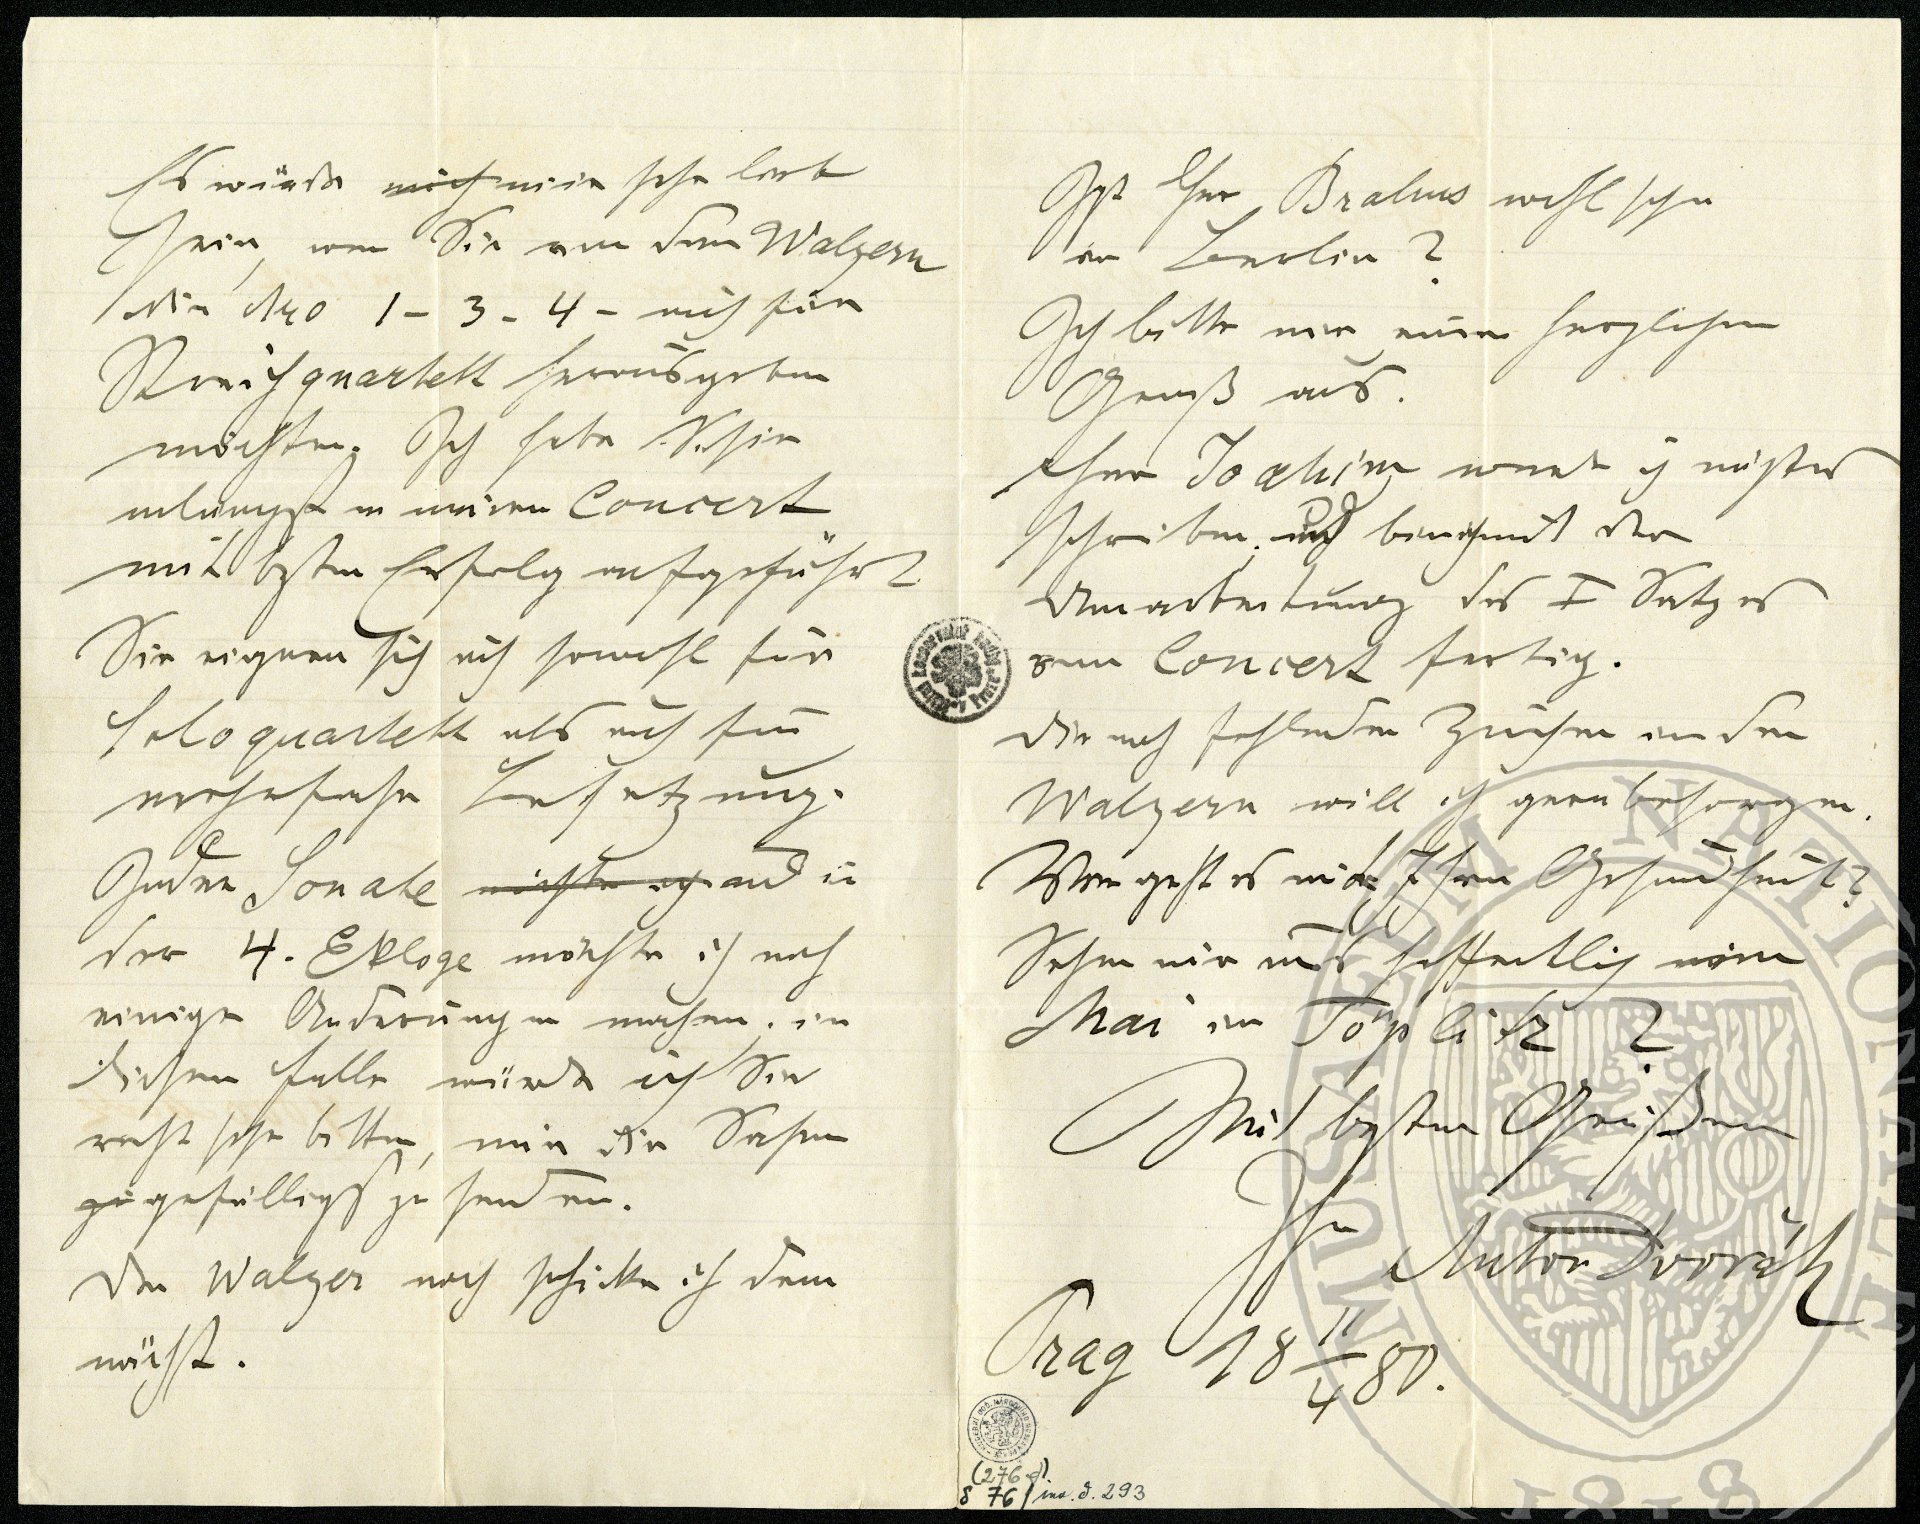 Es würde mich mir sehr lieb
sein, wen Sie von den Walzern
die Nro 1 – 3 – 4 – auch für
Streichquartett herausgeben
möchten. Ich habe Sie hier
unlängst in einem Concert
mit bestem Erfolg aufgeführt
Sie eignen sich auch sowohl für
Soloquartett als auch für
mehrfache Besetzung.
In der Sonate möchte ich und in
der 4. Ekloge möchte ich noch
einige Änderungen machen, in
diesem Falle würde ich Sie
recht sehr bitten, mir die Sachen
zu gefälligst zu senden.
Den Walzer noch schicke ich dem
nächst.
Ist Herr Brahms wohl schon
in Berlin?
Ich bitte um einen herzlichen
Gruß aus.
Herr Joachim werde ich nächstes
schreiben, und bin eben mit der
Umarbeitung des I Satzes
vom Concert fertig.
Die noch fehlenden Zeichen in den
Walzern will ich gern besorgen.
Wie geht es mit Ihrer Gesundheit?
Sehen wir uns hoffentlich im
Mai in Töplitz?
Mit besten Grüßen
Ihr
Anton Dvořák
Prag 18 11/4 80.
(276 d)
S 76/ inv. č. 293
MUSAEUM NATIONALE
1818